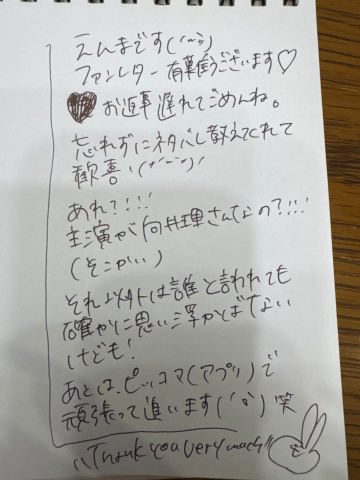 えんまです(´ー`)
ファンレター 有難うございます♡
お返事 遅れてごめんね。
忘れずにネタバレ教えてくれて
歓喜、(´ー`)ノ
あれ?!!!
主演が向井理さんなの?!!!
(そこかい)
それ以外は誰と言われても
確かに思い浮かばない
けども!
あとは、ピッコマ(アプリ)で
頑張って追います(´ο`)笑
"Thank you very much"